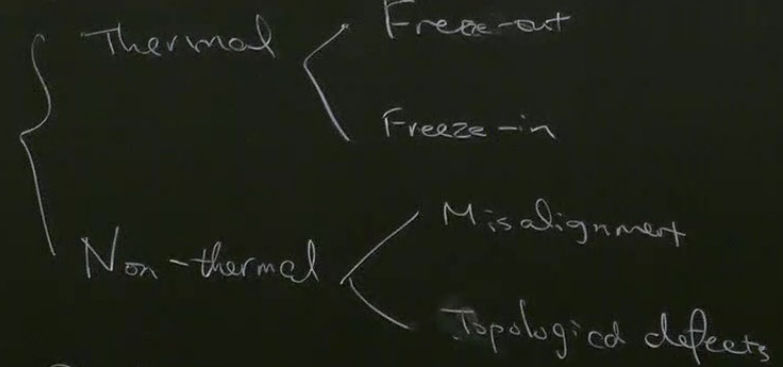 Thermal
Freeze-out
Freeze-in
Non-thermal
Misalignment
Topological defects